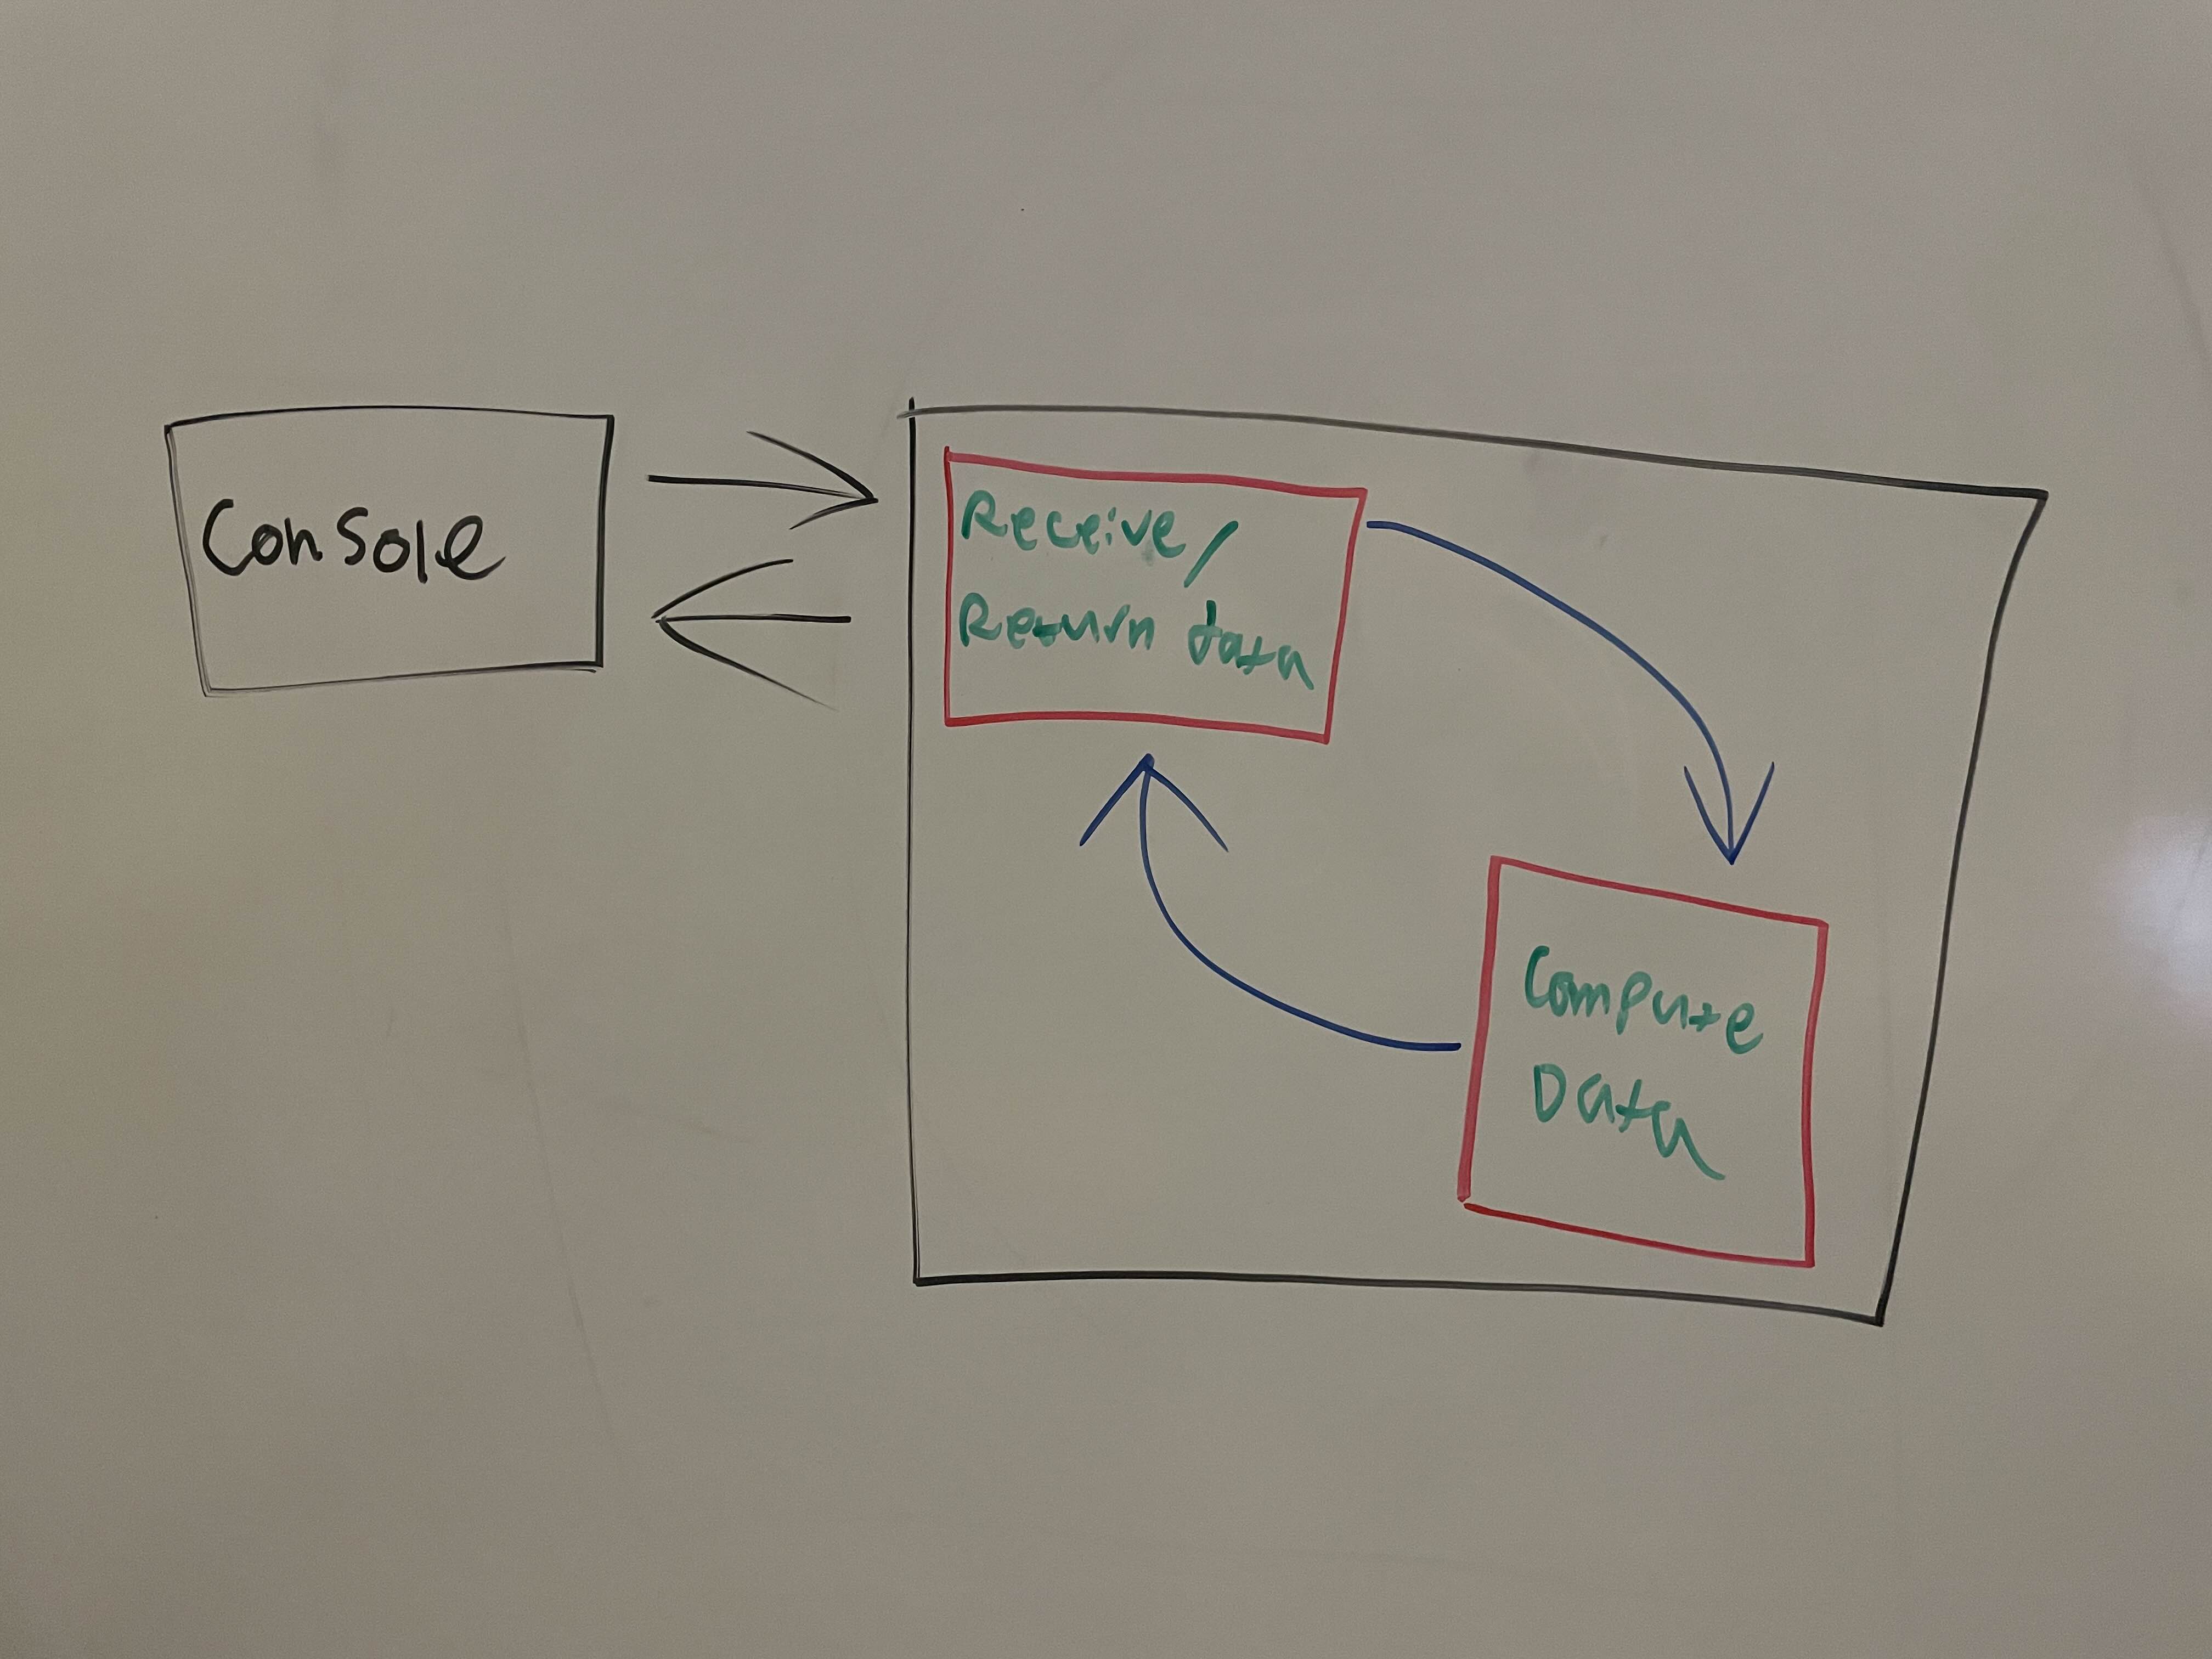 Console
Receive/
Return data
Compute
Data